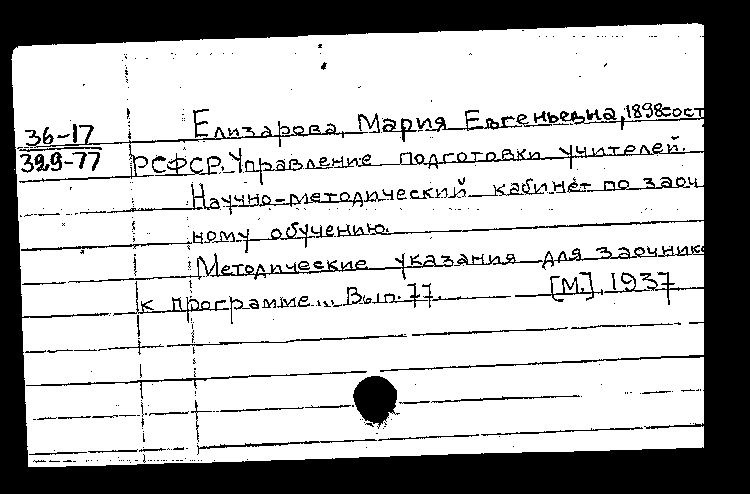 36-17
329-77
Елизарова, Мария Евгеньевна, 1898-сост
РСФСР. Управление подготовки учителей.
Научно-методический кабинет по заоч
ному обучению.
Методические указания для заочнико
к программе... Вып. 77. [М.], 1937